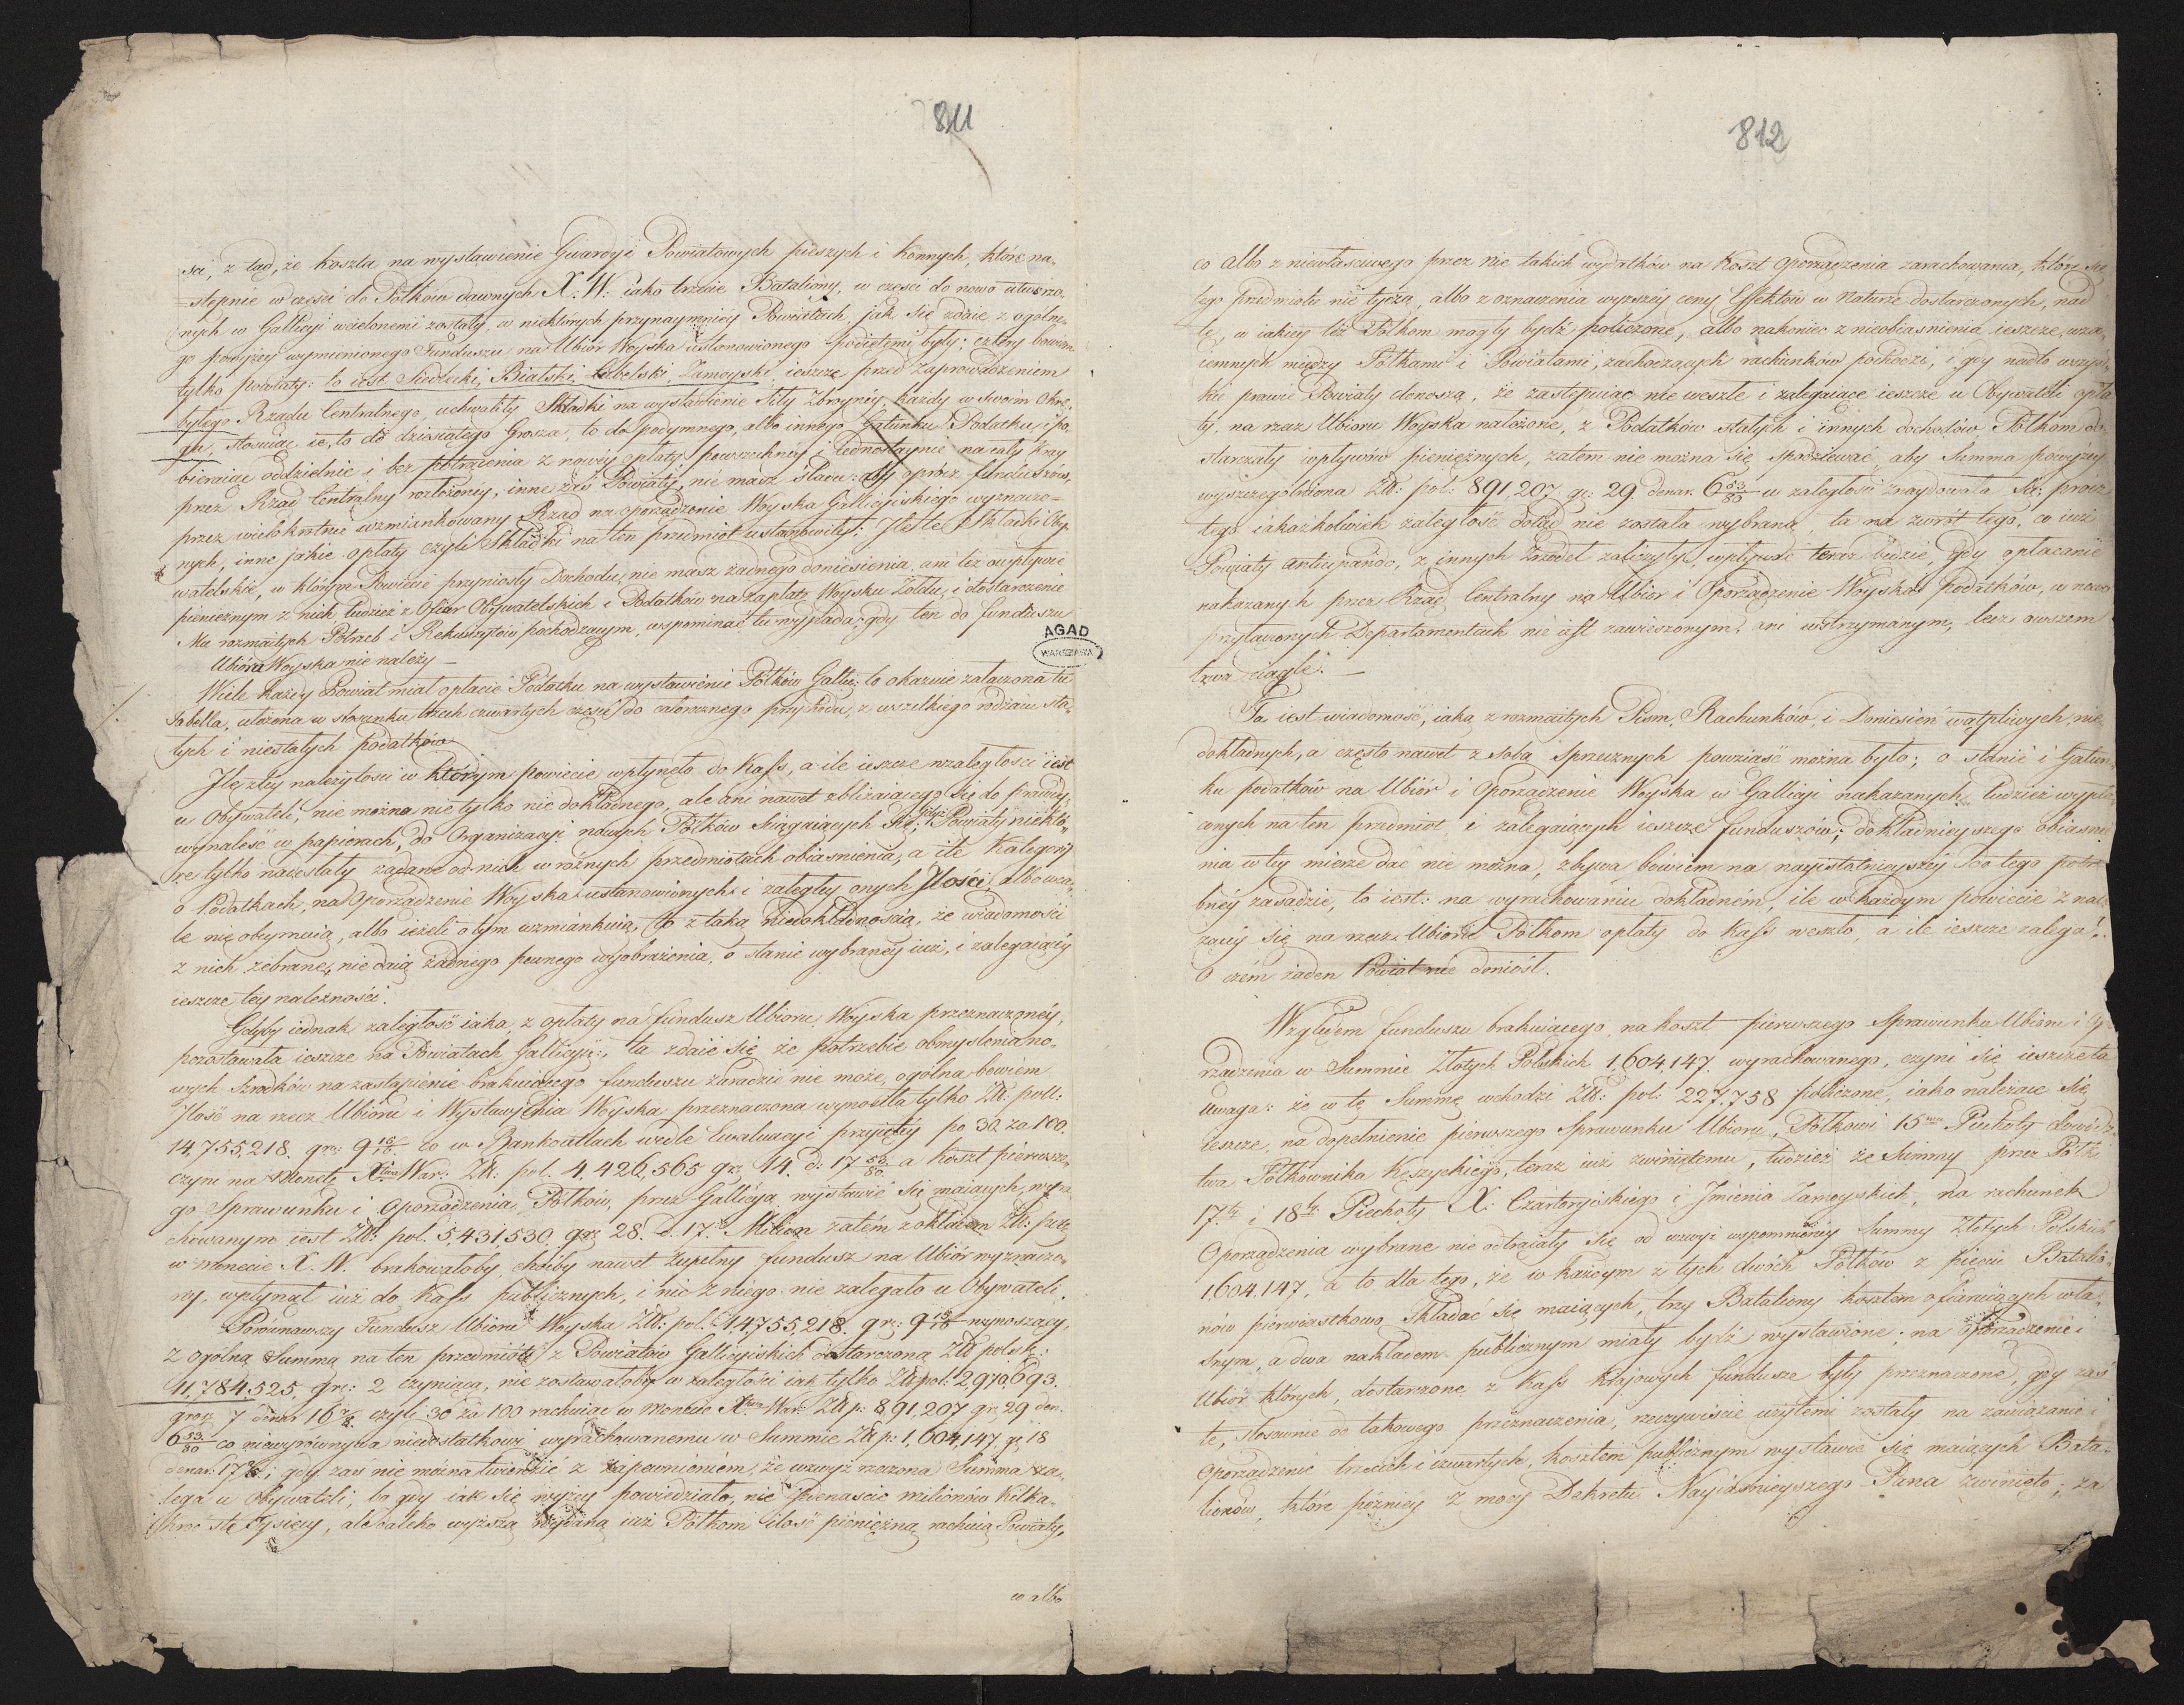 811
ści, z tąd, że koszta na wystawienie Gwardyi Powiatowych pieszych i konnych, które na-
stępnie w części do Półków dawnych X: W: iako trzecie Bataliony, w części do nowo utworzo-
nych w Gallicyi wcielonemi zostały, w niektórych przynaymniey Powiatach, jak się zdaie z ogólne-
go powyżey wymienionego Funduszu na Ubiór Woyska ustanowionego podiętemi były; cztery bowiem
tylko powiaty: to iest Siedlecki, Bialski, Lubelski, Zamoyski, ieszcze przed zaprowadzeniem
byłego Rządu Centralnego, uchwaliły Składki na wystawienie Siły Zbroyney, każdy w swoim Okrę-
gu, stosuiąc ie, to do dziesiątego Grosza, to do podymnego, albo innego Gatunku Podatku, i po-
bieraiąc oddzielnie i bez potrącenia z nowéy opłaty powszechnéy i iednostaynie na cały Kray
przez Rząd Centralny rozłożoney, inne zaś Powiaty, nie masz śladu: aby oprócz funduszów,
przez wielokrotnie wzmiankowany Rząd na oporządzenie Woyska Gallicyiskiego wyznaczo-
nych, inne jakie opłaty czyli Składki na ten przedmiot ustanowiły: Jle te Składki Oby-
watelskie, w którym Powiecie przyniosły Dochodu, nie masz żadnego doniesienia, ani też o wpływie
pieniężnym z nich, tudzież z Ofiar Obywatelskich i Podatków na zapłatę Woysku Żołdu, i dostarczenie
Mu rozmaitych Potrzeb i Rekwizytów pochodzącym, wspominać tu wypada, gdy ten do funduszu
Ubioru Woyska nie należy —
AGAD
WARSZAWA
Wiele każdy Powiat miał opłacić Podatku na wystawienie Półków Gallic: to okazuie załączona tu
Tabella, ułożona w stosunku trzech czwartych części do całorocznego przychodu, z wszelkiego rodzaiu sta-
łych i niestałych podatków.
Jle z tey należytości w którym powiecie wpłynęło do Kass, a ile ieszcze w zaległości iest
u Obywateli, nie można nie tylko nic dokładnego, ale ani nawet zbliżaiącego się do prawdy,
wynaleść w papierach, do Organizacyi nowych Półków ściągaiących się, gdyż Powiaty niektó-
re tylko nadesłały żądane od nich w różnych przedmiotach obiaśnienia, a ile Kategoryi
o Podatkach, na Oporządzenie Woyska ustanowionych i zaległey onych Jlości, albo wca-
le nie obeymuią, albo ieżeli o tym wzmiankuią, to z taką niedokładnością, że wiadomości
z nich zebrane, nie daią żadnego pewnego wyobrażenia, o stanie wybranéy iuż, i zalegaiącéy
ieszcze tey należności.
Gdyby iednak zaległość iaka, z opłaty na fundusz Ubioru Woyska przeznaczonéy,
pozostawała ieszcze na Powiatach Gallicyi:, ta zdaie się że potrzebie obmyślenia no-
wych środków na zastąpienie brakuiącego funduszu zaradzić nie może, ogólna bowiem
Jlość na rzecz Ubioru i Wystawienia Woyska przeznaczona wynosiła tylko Złł: poll:
14,755,218. gr: 9 16/18 co w Bankocetlach wedle Ewaluacyi przyiętéy po 30. za 100.
czyni na Monetę Xtwa War: Złł: pol. 4,426,565 gr. 14. d: 17 53/80 a koszt pierwsze-
go Sprawunku i Oporządzenia Półków, przez Gallicyą wystawić się maiących, wyra-
chowanym iest Złł: pol. 5,431,530 gr. 28. d. 17. Milion zatém z okładem Złł: pol:
w Monecie X. W. brakowałoby, choćby nawet zupełny fundusz na Ubiór wyznaczo-
ny, wpłynął iuż do Kass publicznych, i nic z niego nie zalegało u Obywateli.
Porównawszy Fundusz Ubioru Woyska Złł: pol. 14,755,218. gr: 9 16/18 wynoszący,
z ogólną Summą na ten przedmiot z Powiatów Gallicyiskich dostarczoną Złł polsk:
11,784,525, gr: 2 czyniącą, nie zostawałoby w zaległości iak tylko Złł pol: 2,970,693.
groz. 7 denar 16 2/8 czyli 30 za 100 rachuiąc w Monecie Xtwa War: Złł p: 891,207 gr 29 den.
6 53/80 co niewyrównywa niedostatkowi wyrachowanemu w Summie Złł p: 1,604,147 g 18
gdy zaś nie można twierdzić z zapewnieniem, że wzwyż rzeczona Summa za-
lega u Obywateli, bo gdy iak się wyżey powiedziało, nie iedenaście milionów kilka-
kroć sto tysięcy, ale daleko wyższą wydaną iuż Półkom ilość pieniężną rachuią Powiaty,
co albo
812
co albo z niewłaściwego przez nie takich wydatków na koszt oporządzenia zarachowania, które się
tego przedmiotu nie tyczą, albo z oznaczenia wyższéy ceny Effektów w Naturze dostarczonych, nad
tę, w iakiéy też Półkom mogły bydź policzone, albo nakoniec z nieobiaśnienia ieszcze, wza-
iemnych między Półkami i Powiatami, zachodzących rachunków pochodzi, i gdy nadto wszyst-
kie prawie Powiaty donoszą, że zastępuiąc nie weszłe i zalegaiące ieszcze u Obywateli opła-
ty, na rzecz Ubioru Woyska nałożone, z Podatków stałych i innych dochodów, Półkom do-
starczały wpływów pieniężnych, zatem nie można się spodziewać, aby Summa powyżéy
wyszczególniona Złł: pol: 891,207 gr: 29 denar. 6 53/80 w zaległości znaydowała się: prócz
tego iakażkolwiek zaległość dotąd nie została wybraną, ta na zwrót tego, co iuż
Powiaty anticipando, z innych źródeł zaliczyły, wpływać teraz będzie, gdy opłacanie
nakazanych przez Rząd Centralny na Ubiór i Oporządzenie Woyska podatków, w nowo
przyłączonych Departamentach nie iest zawieszonym, ani wstrzymanym, lecz owszem
trwa ciągle. —
Ta iest wiadomość, iaką z rozmaitych Pism, Rachunków, i Doniesień wątpliwych, nie-
dokładnych, a często nawet z sobą sprzecznych powziąść można było; o stanie i Gatun-
ku podatków na Ubiór i Oporządzenie Woyska w Gallicyi nakazanych, tudzież wypła-
conych na ten przedmiot, i zalegaiących ieszcze funduszów; dokładnieyszego obiaśnie-
nia w tey mierze dać nie można, zbywa bowiem na nayistotnieyszéy do tego potrze-
bnéy zasadzie, to iest: na wyrachowaniu dokładném, ile w każdym powiecie z nale-
żącéy się na rzecz Ubioru Półkom opłaty do Kass weszło, a ile ieszcze zalega!
O czém żaden Powiat nie doniósł.
Względem funduszu brakuiącego na koszt pierwszego Sprawunku Ubioru i Opo-
rządzenia w Summie Złotych Polskich 1,604,147. wyrachowanego, czyni się ieszcze ta
uwaga: że w tę Summę wchodzi Złł: pol: 227,758 policzone, iako należące się
ieszcze, na dopełnienie pierwszego Sprawunku Ubioru, Półkowi 15mu Piechoty dowódz-
twa Półkownika Kęszyckiego, teraz iuż zwiniętemu, tudzież że Summy przez Półk
17ty i 18ty Piechoty X: Czartoryiskiego i Jmienia Zamoyskich, na rachunek
Oporządzenia wybrane nie odtrącały się od wzwyż wspomnionéy Summy Złotych Polskich
1,604,147, a to dla tego, że w każdym z tych dwóch Półków z pięciu Batalio-
nów pierwiastkowo składać się maiących, trzy Bataliony kosztem ofiaruiących wła-
snym, a dwa nakładem publicznym miały bydź wystawione; na oporządzenie i
Ubiór których, dostarczone z Kass Krajowych fundusze były przeznaczone, gdy zaś
te, stosownie do takowego przeznaczenia, rzeczywiście użytemi zostały na zawiązanie i
Oporządzenie trzecich i czwartych, kosztem publicznym wystawić się maiących Bata-
lionów, które późniéy z mocy Dekretu Nayiaśnieyszego Pana zwinięto; za